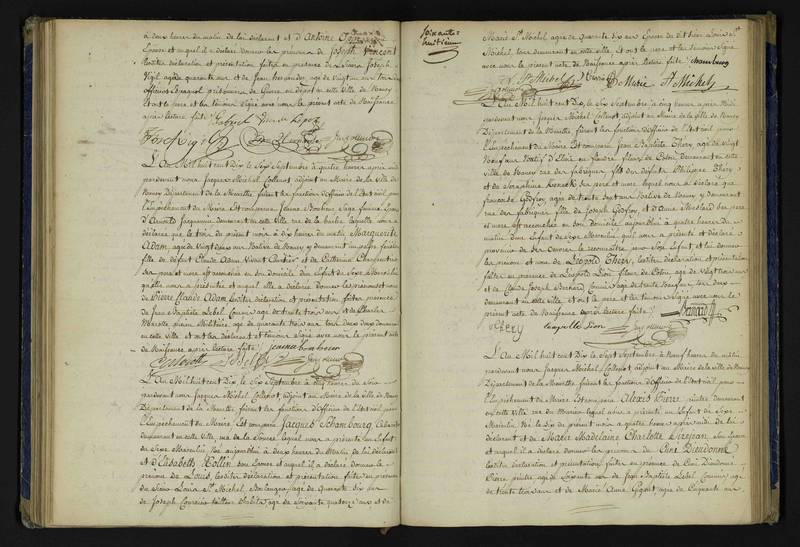 à deux heures du matin de lui déclarant et d'Antoine
Epouse et auquel il a déclaré donner les prénoms de Joseph Vincent
lesdites déclaration et présentation faites en présence de Joseph
Vigil agé de quarante ans et de Jean Fernandez, agé de vingt un ans tous deux
officiers Espagnols prisonniers de Guerre en dépôt en cette Ville de Nancy
et ont le père et les témoins signé avec nous le présent acte de Naissance
après lecture faite Gabriel Lopez
L'An Mil huit cent Dix, le Six Septembre à quatre heures après midi
pardevant nous Jacques Michel Collenot adjoint au Maire de la Ville de
Nancy Département de la Meurthe, faisant les fonctions d'officier de l'Etat civil pour
l'Empêchement du Maire, Est comparue Jeanne Bonheur Sage femme Epouse
d'Arnould Jacquemin demeurant en cette Ville rue de la laquelle nous a
déclaré que le trois du présent mois à dix heures du matin Marguerite
Adam, agée de Vingt deux ans Native de Nancy y demeurant
fille de défunt Claude Adam Vivant et de Catherine Charpentier
ses père et mère est accouchée en son domicile d'un Enfant de Sexe Masculin
qu'elle nous a présenté et auquel elle a déclaré donner les prénoms et nom
de Pierre Claude Adam lesdites déclaration et présentation faites en présence
de Jean Baptiste Lebel Commis agé de trente trois ans et de Charles
Marotte, pension Militaire, agé de quarante trois ans tous deux demeurant
en cette Ville et ont la déclarante et témoins signé avec nous le présent acte
de Naissance après lecture faite jeanne bonheur
Marotte Lebel
L'An Mil huit cent Dix, le Six Septembre à cinq heures du Soir
pardevant nous Jacques Michel Collenot, adjoint au Maire de la Ville de Nancy
Département de la Meurthe, faisant les fonctions d'officier de l'Etat civil pour
l'Empêchement du Maire, Est comparu Jacques Chambourg
demeurant en cette Ville, rue de la Source lequel nous a présenté un Enfant
du Sexe Masculin, Né aujourd'hui à deux heures du Matin de lui déclarant
et d'Elisabeth Hollin son Epouse et auquel il a déclaré donner le
prénom de Louis, lesdites déclaration et présentation faites en présence
du Sieur Louis St Michel, Boulanger agé de quarante six ans
de Joseph tailleur d'habits, agé de soixante quatorze ans et de
Soixante
huitième
Marie St Michel agée de quarante six ans Epouse du dit Sieur Louis St
Michel, tous demeurant en cette ville et ont le père et les témoins signé
avec nous le présent acte de Naissance après lecture faite Chambourg
L. St Michel De Marie St Michel
L'An Mil huit cent Dix, le Six Septembre à cinq heures après Midi
pardevant nous Jacques Michel Collenot adjoint au Maire de la ville de Nancy
Département de la Meurthe, faisant les fonctions d'officier de l'Etat civil pour
l'Empêchement du Maire Est comparu Jean Baptiste Thery, agé de Vingt
Neuf ans Natif de Lille en flandre fileur de Coton demeurant en cette
Ville de Nancy rue des fabriques fils des défunts Philippe Thery
et de Séraphine ses père et mère lequel nous a déclaré que
françoise Godfroy, agée de trente sept ans Native de Nancy y demeurant
rue des fabriques fille de Joseph Godfroy, et d'Anne Maillard ses père
et mère est accouchée en son domicile aujourd'hui à quatre heures du
matin d'un Enfant de Sexe Masculin, qu'il nous a présenté et déclaré
provenir de ses Oeuvres le reconnaître pour son Enfant et lui donner
les prénom et nom de Léopold Thery, lesdites déclaration et présentation
faites en présence de Léopold Lion fileur de Coton, agé de Vingt trois ans
et de Claude Joseph Bernard Commis agé de trente Neuf ans tous deux
demeurant en cette ville, et ont le père et les témoins signé avec nous le
présent acte de Naissance après lecture faite Bernard
Thery Léopolde Lion
L'An Mil huit cent Dix, le Sept Septembre à Neuf heures du matin
pardevant nous Jacques Michel Collenot, adjoint au Maire de la ville de Nancy
Département de la Meurthe, faisant les fonctions d'officier de l'Etat civil pour
l'Empêchement du Maire Est comparu Alexis Pierre, peintre demeurant
en cette Ville rue du lequel nous a présenté un Enfant de Sexe
Masculin Né le Six du présent mois à quatre heures après midi de lui
déclarant et de Marie Madelaine Charlotte Lirejean son Epouse
et auquel il a déclaré donner les prénoms de Réné Dieudonné
lesdites déclaration et présentation faites en présence de Réné Dieudonné
Pierre, peintre agé de soixante ans de Jean Baptiste Lebel Commis agé
de trente trois ans et de Marie Anne Gigout agée de Cinquante ans